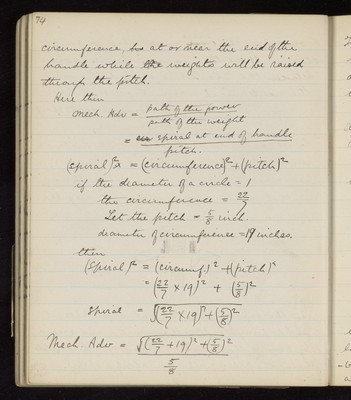 74
circumference, bro at or near the end of the
handle while the weights will be raised
through the pitch.
Here then
Mech. Adv = path of the power / path of the weight
= spiral at end of handle / pitch.
(spiral)² = (circumference)² + (pitch)²
if the diameter of a circle = 1
the circumference = 22/7
Let the pitch = 5/8 inch.
diameter of circumference = 19 inches
then
(spiral)² = (circumf.)² + (pitch)²
= (22/7 × 19)² + (5/8)²
spiral = √(22/7 × 19)² + (5/8)²
Mech Adv = √(22/7 + 19)² + (5/8)² / 5/8